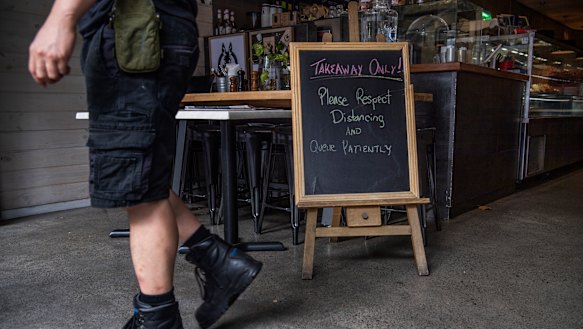 TAKEAWAY ONLY!
Please Respect
Distancing
AND
Queue Patiently